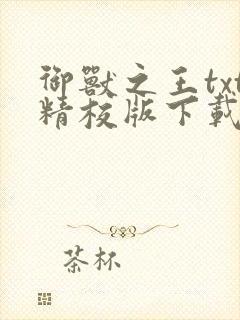 御獸之王txt
精校版下載
茶杯